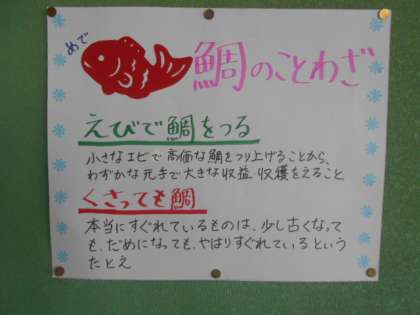 めで
鯛のことわざ
えびで鯛をつる
小さなエビで高価な鯛をつり上げることから、
わずかな元手で大きな収益・収穫をえること
くさっても鯛
本当にすぐれているものは、少し古くなって
も、だめになっても、やはりすぐれているという
たとえ